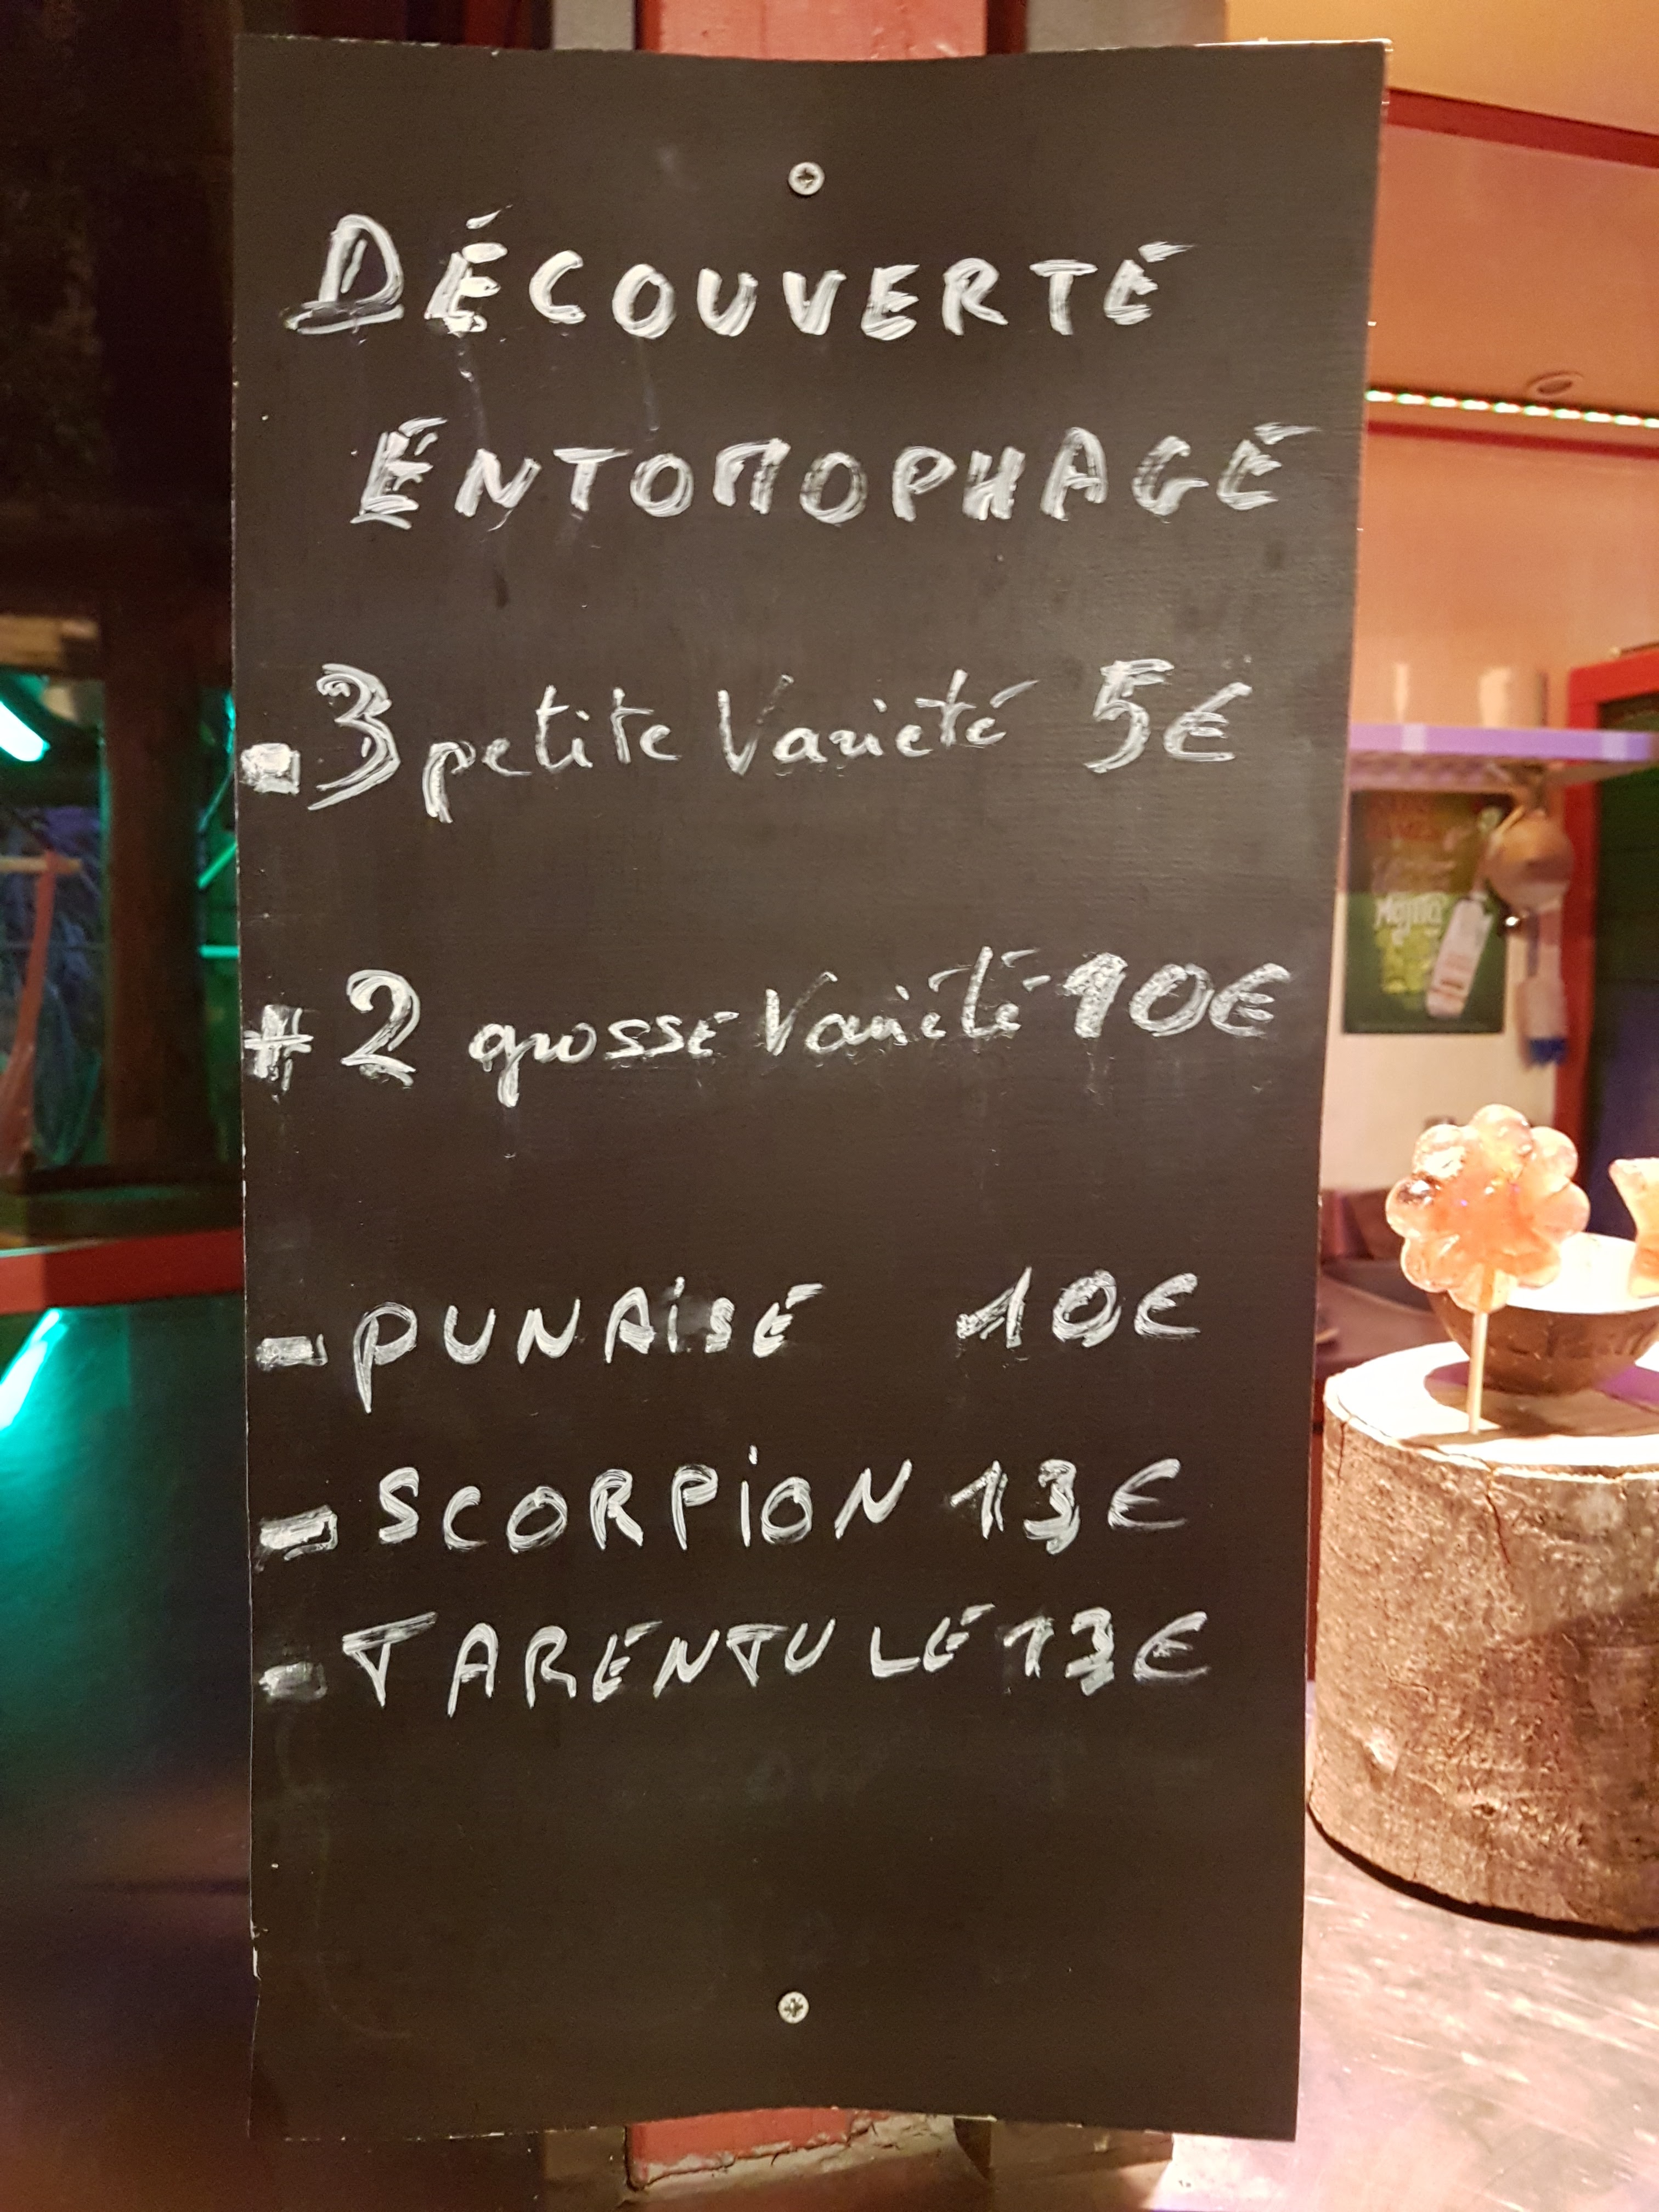 DÉCOUVERTE
ENTOMOPHAGE
- 3 petite Variété 5€
# 2 grosse Variété 10€
- PUNAiSE 10€
- SCORPiON 13€
- TARENTULE 13€
Mojito